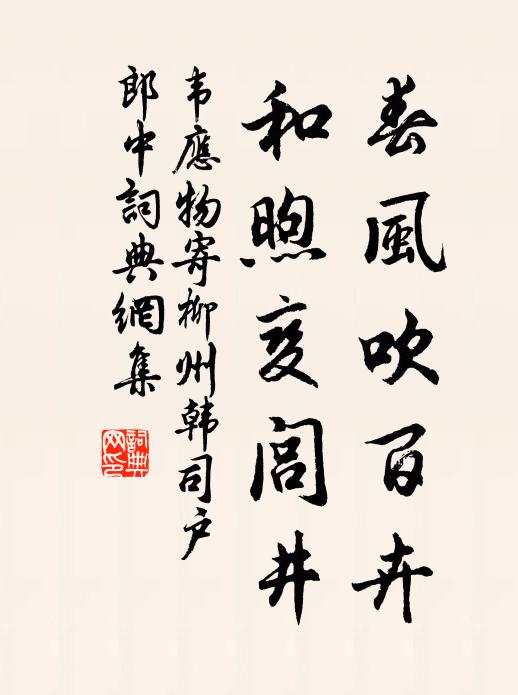 春風吹百卉
和煦变闾井
韦應物寄柳州韩司户
郎中詞典網集
詞典
网印